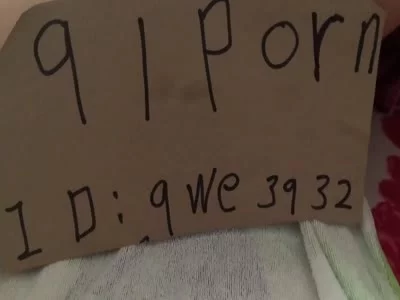 91porn
ID:qwe3932